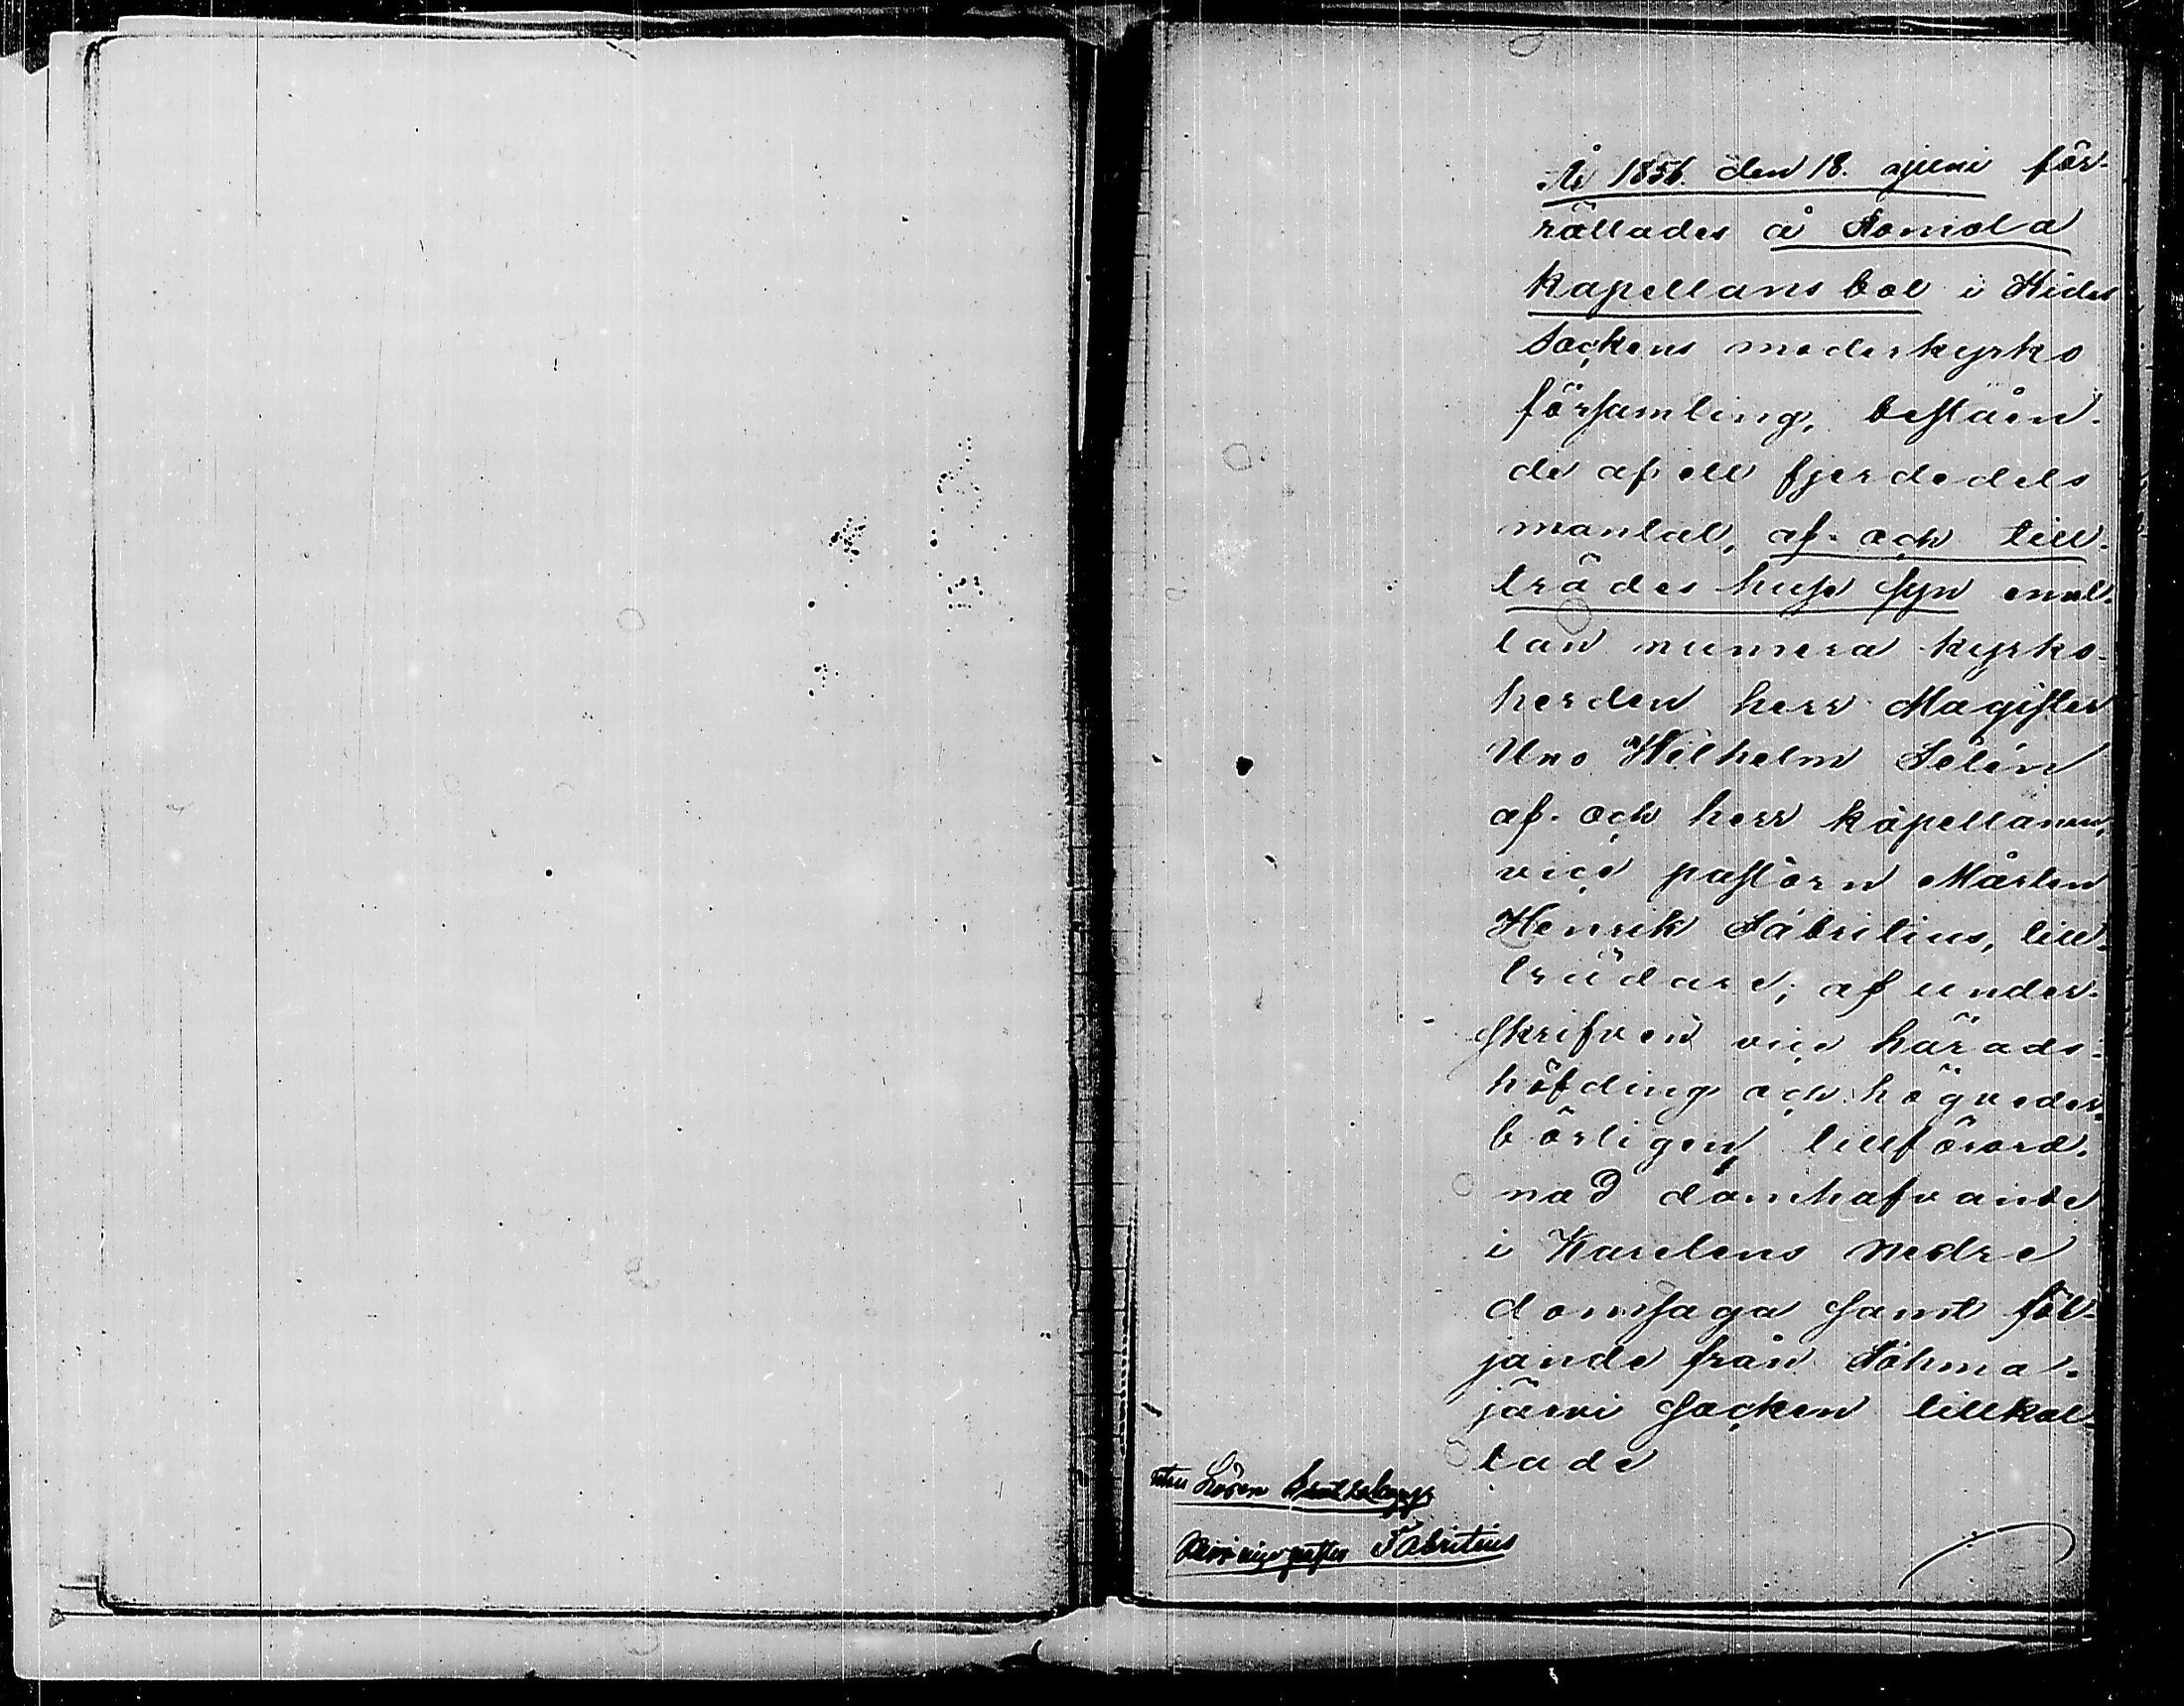 År 1856. den 18. juni för-
rättades å Komola
kapellans bol i Kides
Sockens moderkyrko
församling, beståen-
de af ett fjerdedels
mantal, af- och till-
trädes husesyn emel-
lan numera kyrko-
herden herr Magister
Uno Wilhelm Telén
af- och herr kapellanen,
vice pastorn Mårten
Henrik Fabritius, till-
trädare; af under-
skrifven vice härads-
höfding och högveder-
börligen tillförord-
nad domhafvande
i Karelens nedre
domsaga samt föl-
jande från Tohma-
järvi Socken tillkal-
lade
Lösen
Herr vice pastor Fabritius